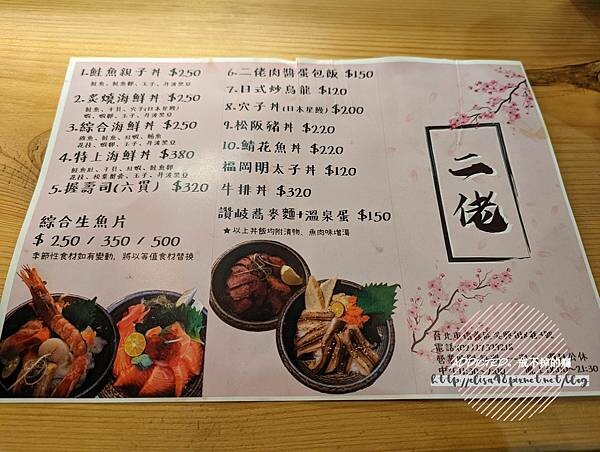 1.鮭魚親子丼 $250
鮭魚、鮭魚卵、玉子、丹波黑豆
2.炙燒海鮮丼 $250
鮭魚、干貝、穴子(日本星鰻)
蝦、蝦卵、玉子、丹波黑豆
3.綜合海鮮丼 $250
鮭魚、紅蝦、鮪魚
花枝、蝦卵、玉子、丹波黑豆
4.特上海鮮丼 $380
鮭魚肚、干貝、紅蝦、鮭魚卵
花枝、松葉蟹膏、玉子、丹波黑豆
5.握壽司(六貫) $320
綜合生魚片
$ 250 / 350 / 500
季節性食材如有變動，將以等值食材替換
6.二佬肉醬蛋包飯 $150
7.日式炒烏龍 $120
8.穴子丼(日本星鰻) $200
9.松阪豬丼 $220
10.鯖花魚丼 $220
福岡明太子丼 $120
牛排丼 $320
讚岐蕎麥麵+溫泉蛋 $150
★以上丼飯均附漬物、魚肉味增湯
二佬
台北市
電話
公休
21:30